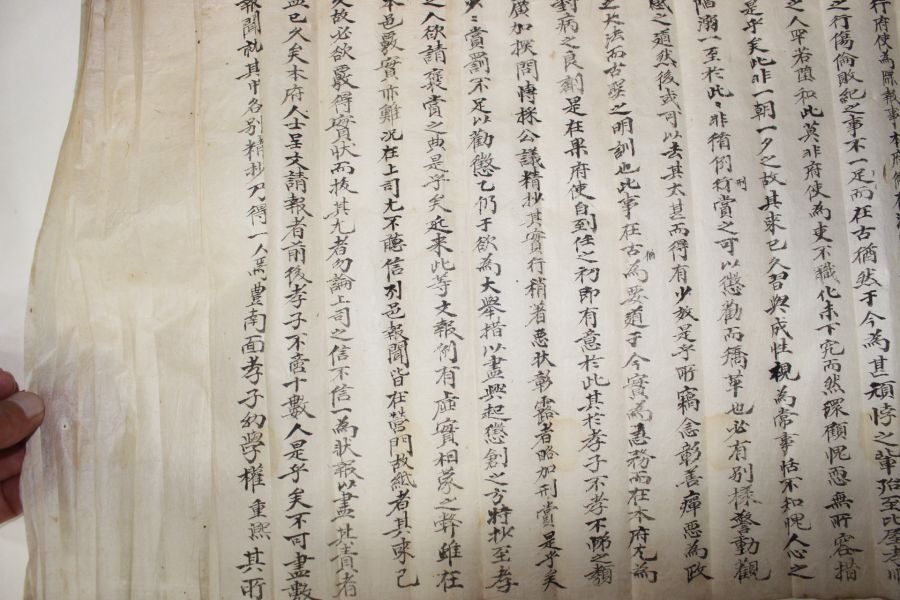 行府使爲牒報事本府
之行傷倫敗紀之事不一足而在古猶然于今爲甚頑悖之輩殆至比屋
之人罕若菌和此莫非府使爲吏不職化未下究而然環顧愧恧無所容措
是乎矣此非一朝一夕之故其來已久習與成性視爲常事恬不知愧人心之
陷溺一至於此〻非循例刑行賞之可以懲勸而矯革也必有別樣警動觀
感之道然後或可以去其太甚而得有少效是乎所竊念彰善癉惡爲政
之大法而古聖之明訓也此事在古猶爲要道于今實爲急務而在本府尤爲
對病之良劑是在果府使自到任之初即有意於此其於孝子不孝不悌之類
廣加採問博採公議精抄其實行稍著惡狀彰露者略加刑賞是乎矣
少〻賞罰不足以勸懲乙仍于欲爲大擧措以盡興起懲創之方特抄至孝
之人欲請褒賞之典是乎矣近來此等文報例有虛實相蒙之弊雖在
本邑覈實亦難況在上司尤不聽信列邑報聞皆在營門故紙者其來已
久故必欲覈得實狀而拔其尤者勿論上司之信不信一爲狀報以盡其責者
盖已久矣本府人士呈文請報者前後孝子不啻十數人是乎矣不可盡數
報聞就其中各別精抄乃得一人焉豊南面孝子幼學權重熙其所